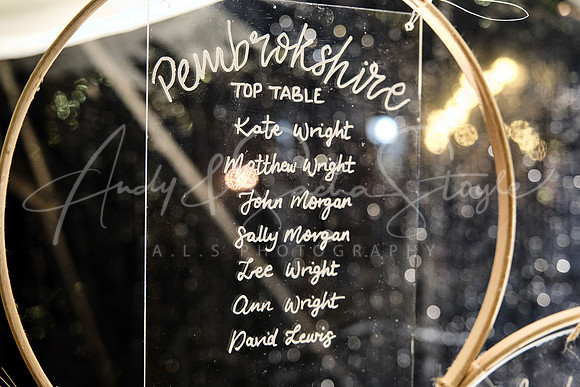 Pembrokshire
TOP TABLE
Kate Wright
Matthew Wright
John Morgan
Sally Morgan
Lee Wright
Ann Wright
David Lewis
Andy & Sacha Stayle
A.L.S PHOTOGRAPHY